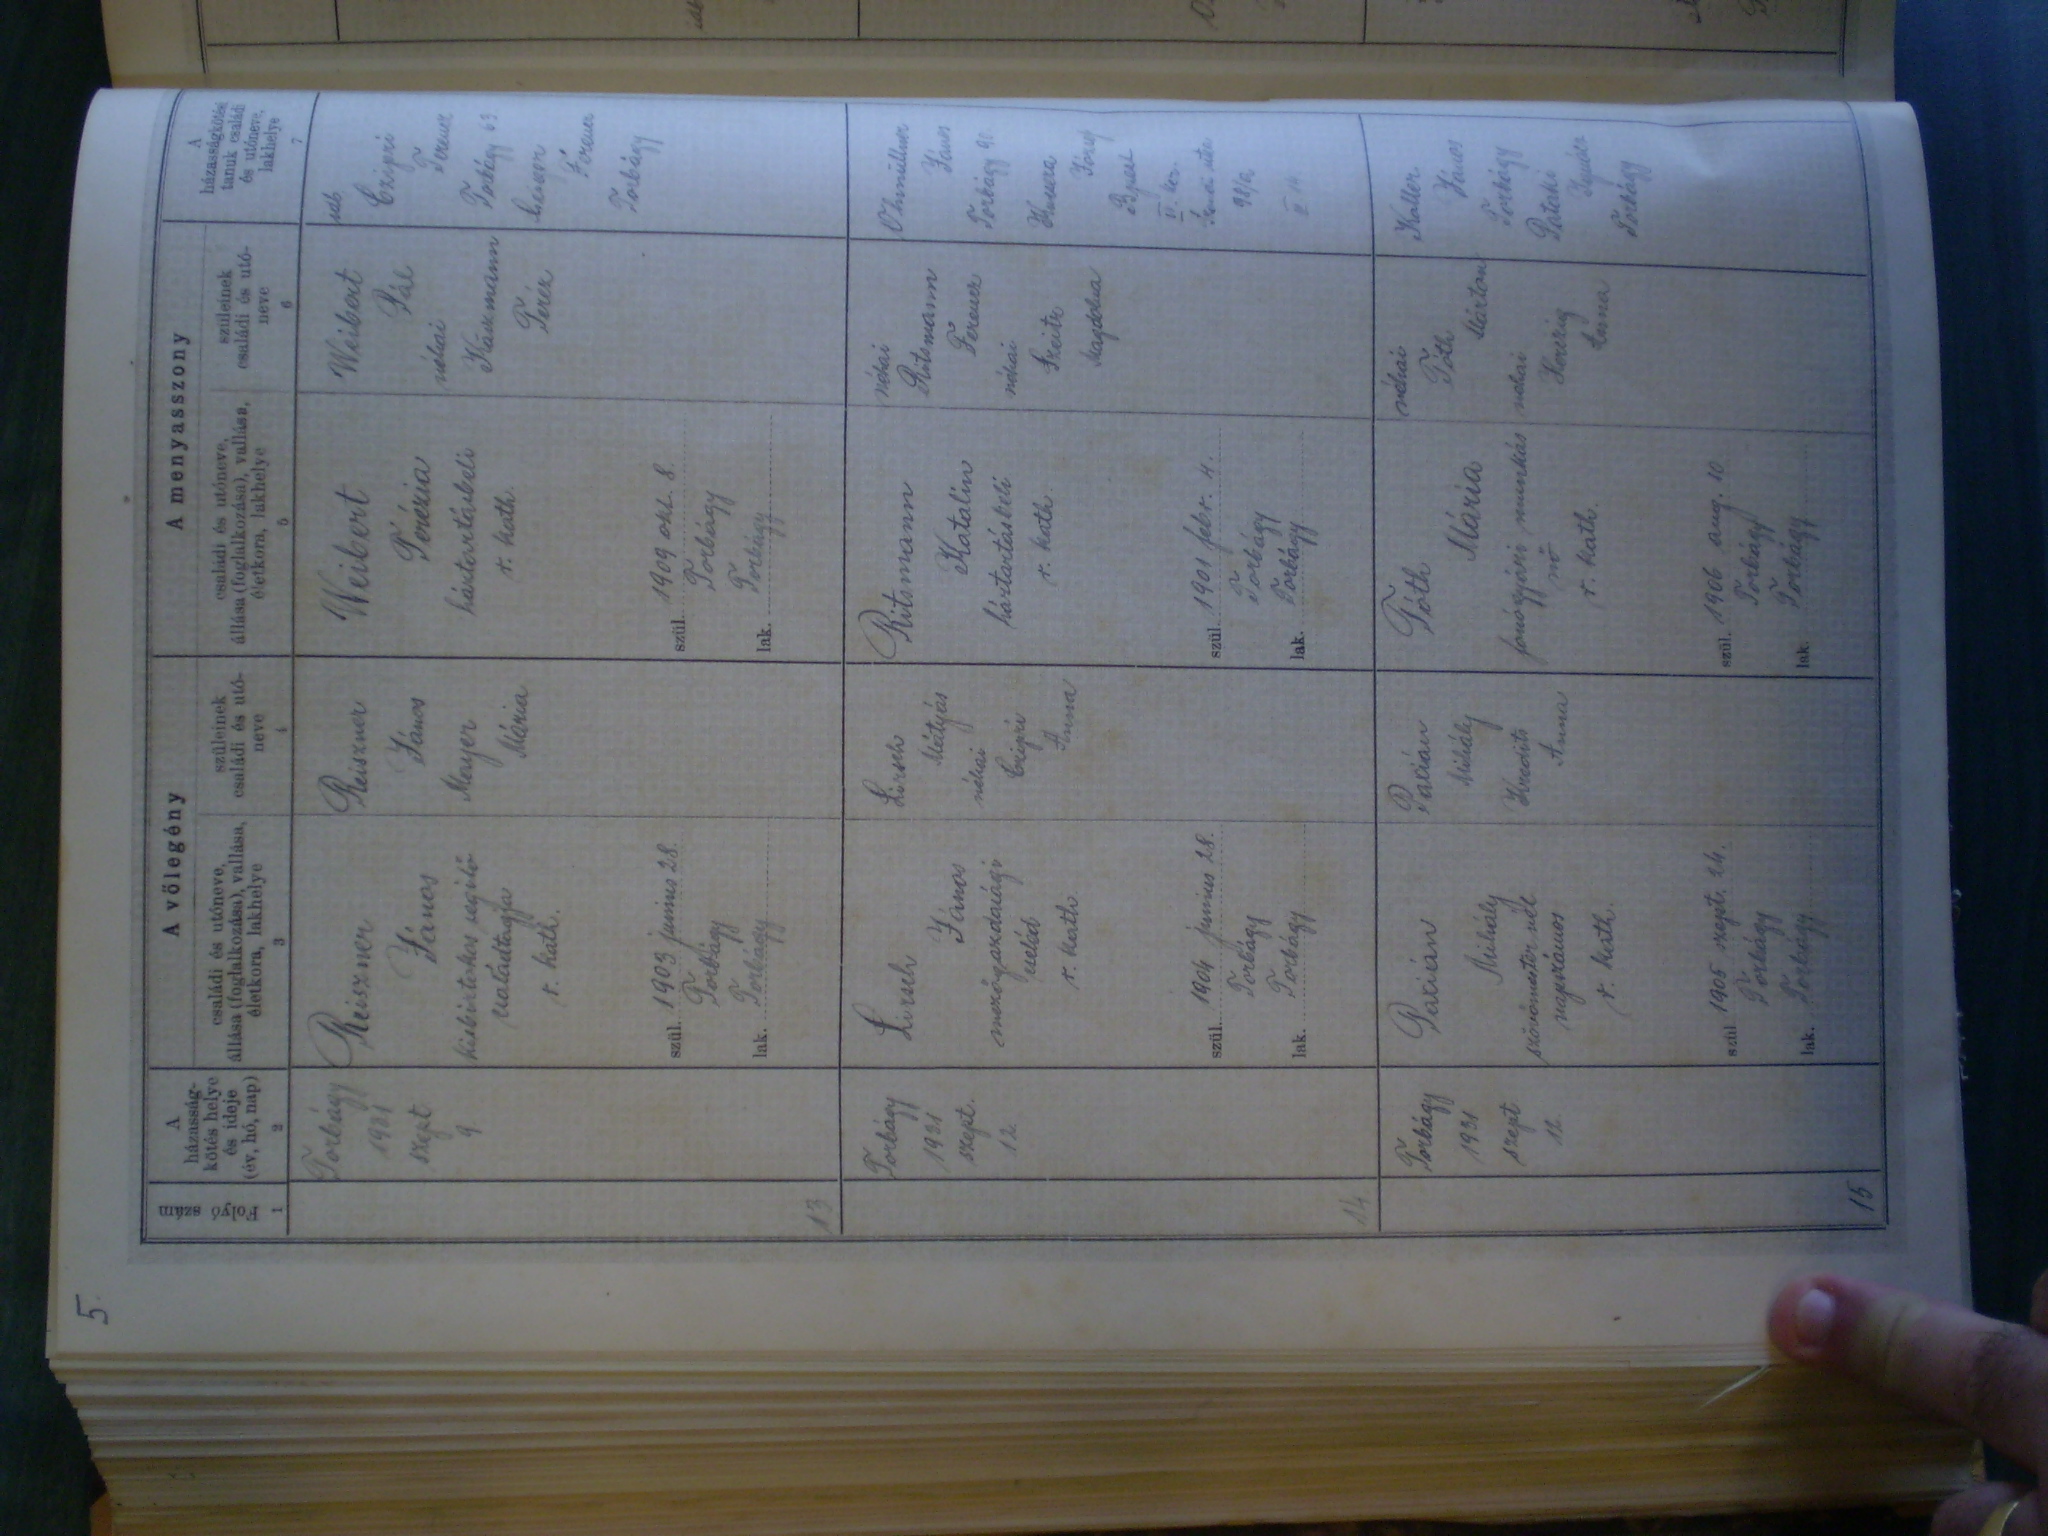 5.
Folyó
szám
1
A
házasság-
kötés helye
és ideje
(év, hó, nap)
2
A vőlegény
családi és utóneve,
állása (foglalkozása), vallása,
életkora, lakhelye
3
szüleinek
családi és utó-
neve
4
A menyasszony
családi és utóneve,
állása (foglalkozása), vallása,
életkora, lakhelye
5
szüleinek
családi és utó-
neve
6
A
házasságkötési
tanuk családi
és utóneve,
lakhelye
7
13
Torbágy
1931
szept.
9.
Reiszner
János
kisbirtokos segítő
családtagja
r. kath.
szül. 1903 junius 28.
Torbágy
lak. Torbágy
Reiszner
János
Mayer
Mária
Weibert
Terézia
háztartásbeli
r. kath.
szül. 1909 okt. 8.
Torbágy
lak. Torbágy
Weibert
Pál
néhai
Teréz
Czipri
Ferenc
Torbágy 63
Ferenc
Torbágy
14
Torbágy
1931
szept.
12.
Lirsch
János
mezőgazdasági
cseléd
r. kath
szül. 1904 junius 28.
Torbágy
lak. Torbágy
Lirsch
Mátyás
néhai
Czipri
Anna
Ritsmann
Katalin
háztartásbeli
r. kath.
szül. 1901 febr. 4.
Torbágy
lak. Torbágy
néhai
Ritsmann
Ferenc
néhai
Magdolna
János
Torbágy 90
József
Bpest
15
Torbágy
1931
szept.
12.
Mihály
szövőmesternél
napszámos
r. kath.
szül. 1905 szept. 24.
Torbágy
lak. Torbágy
Mihály
Anna
Tóth
Mária
fonógyári munkás
nő
r. kath.
szül. 1906 aug. 10
Torbágy
lak. Torbágy
néhai
Tóth
Márton
néhai
Anna
Haller
János
Torbágy
Pataki
Torbágy